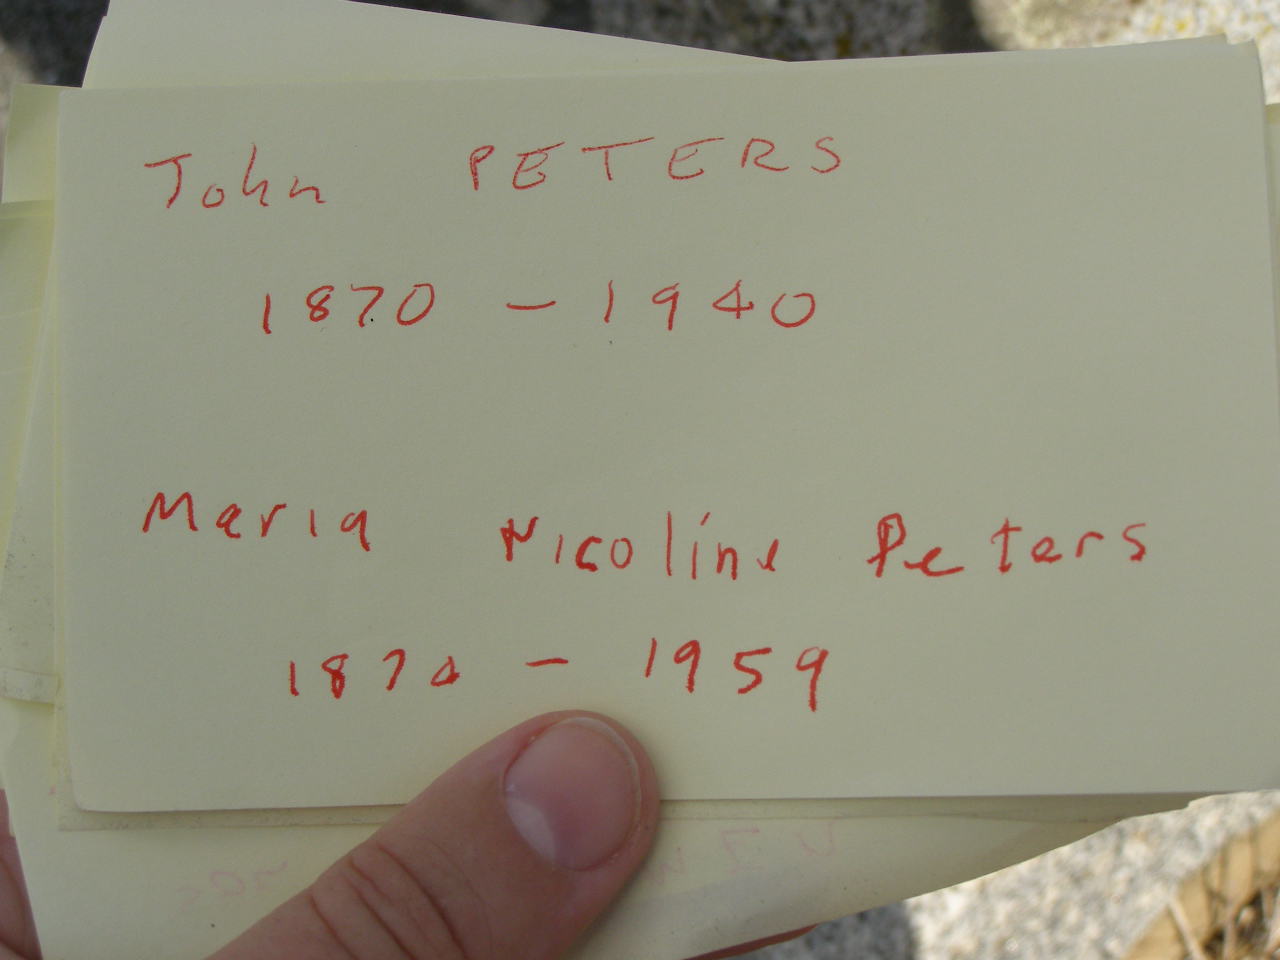 John PETERS
1870 - 1940
Maria Nicoline Peters
1874 - 1959